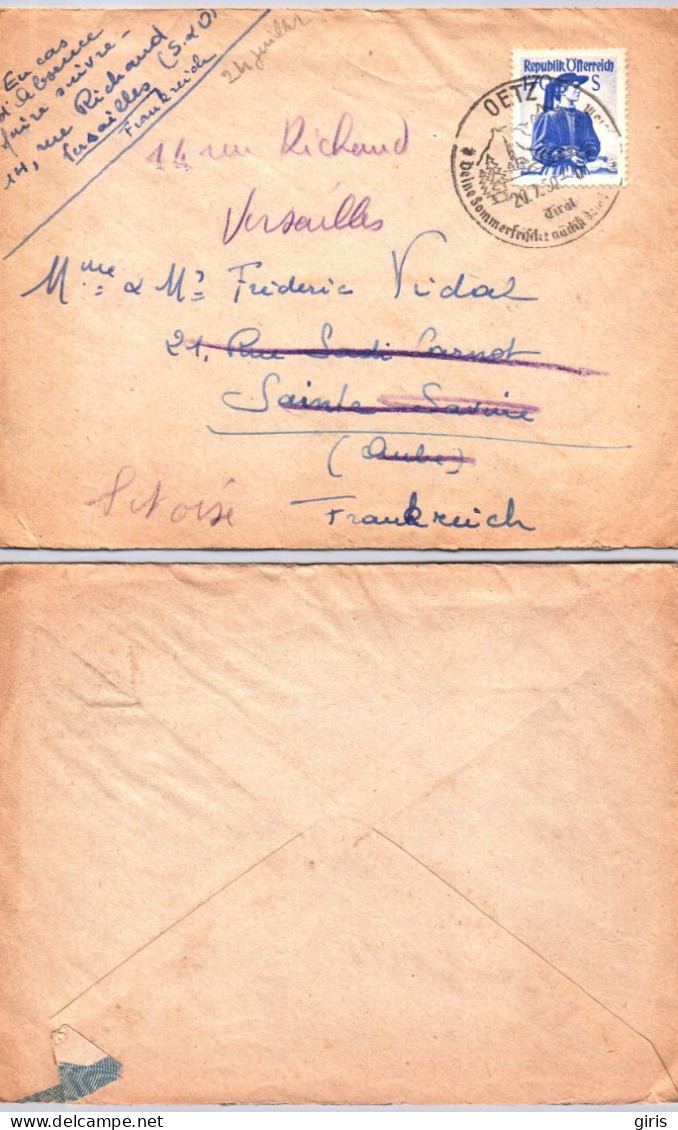 En cas
d'absence
faire suivre -
14, rue Richaud
Versailles (S. & O)
Frankreich
24 juillet
Republik Österreich
S
OETZ
20.7.50
Tirol
* Deine Sommerfrische
14 rue Richaud
Versailles
Mme & Mr Frédéric Vidal
21, Rue Sadi Carnot
Sainte Savine
(Aube)
S et Oise
Frankreich
giris